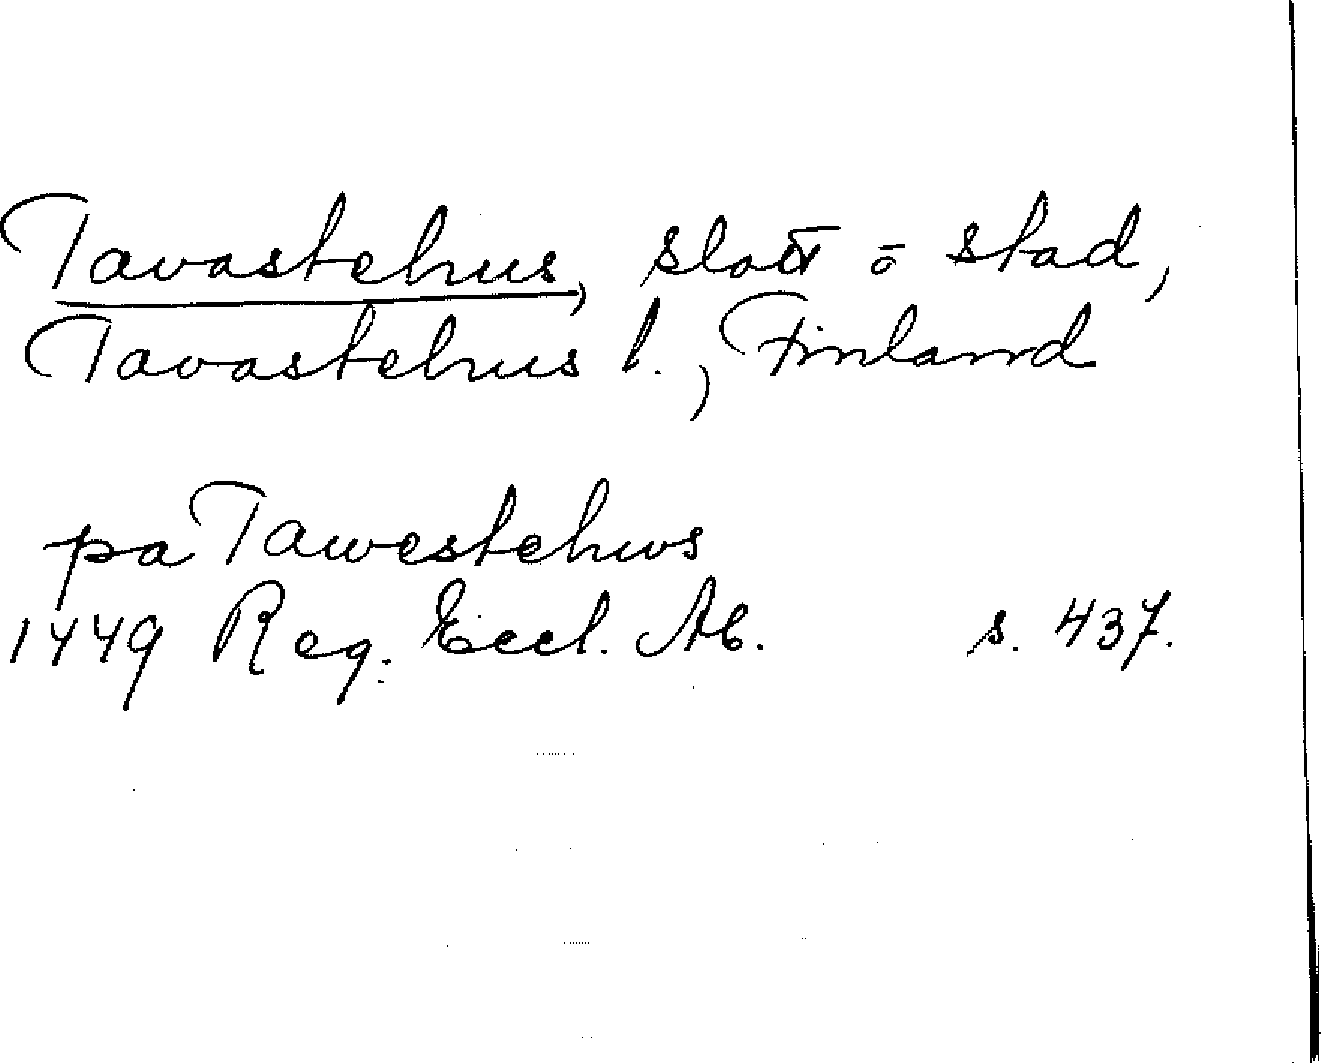 Tavastehus, slott o stad,
Tavastehus l., Finland
pa Tawestehws
1449 Reg. Eccl. Ab. s. 437.